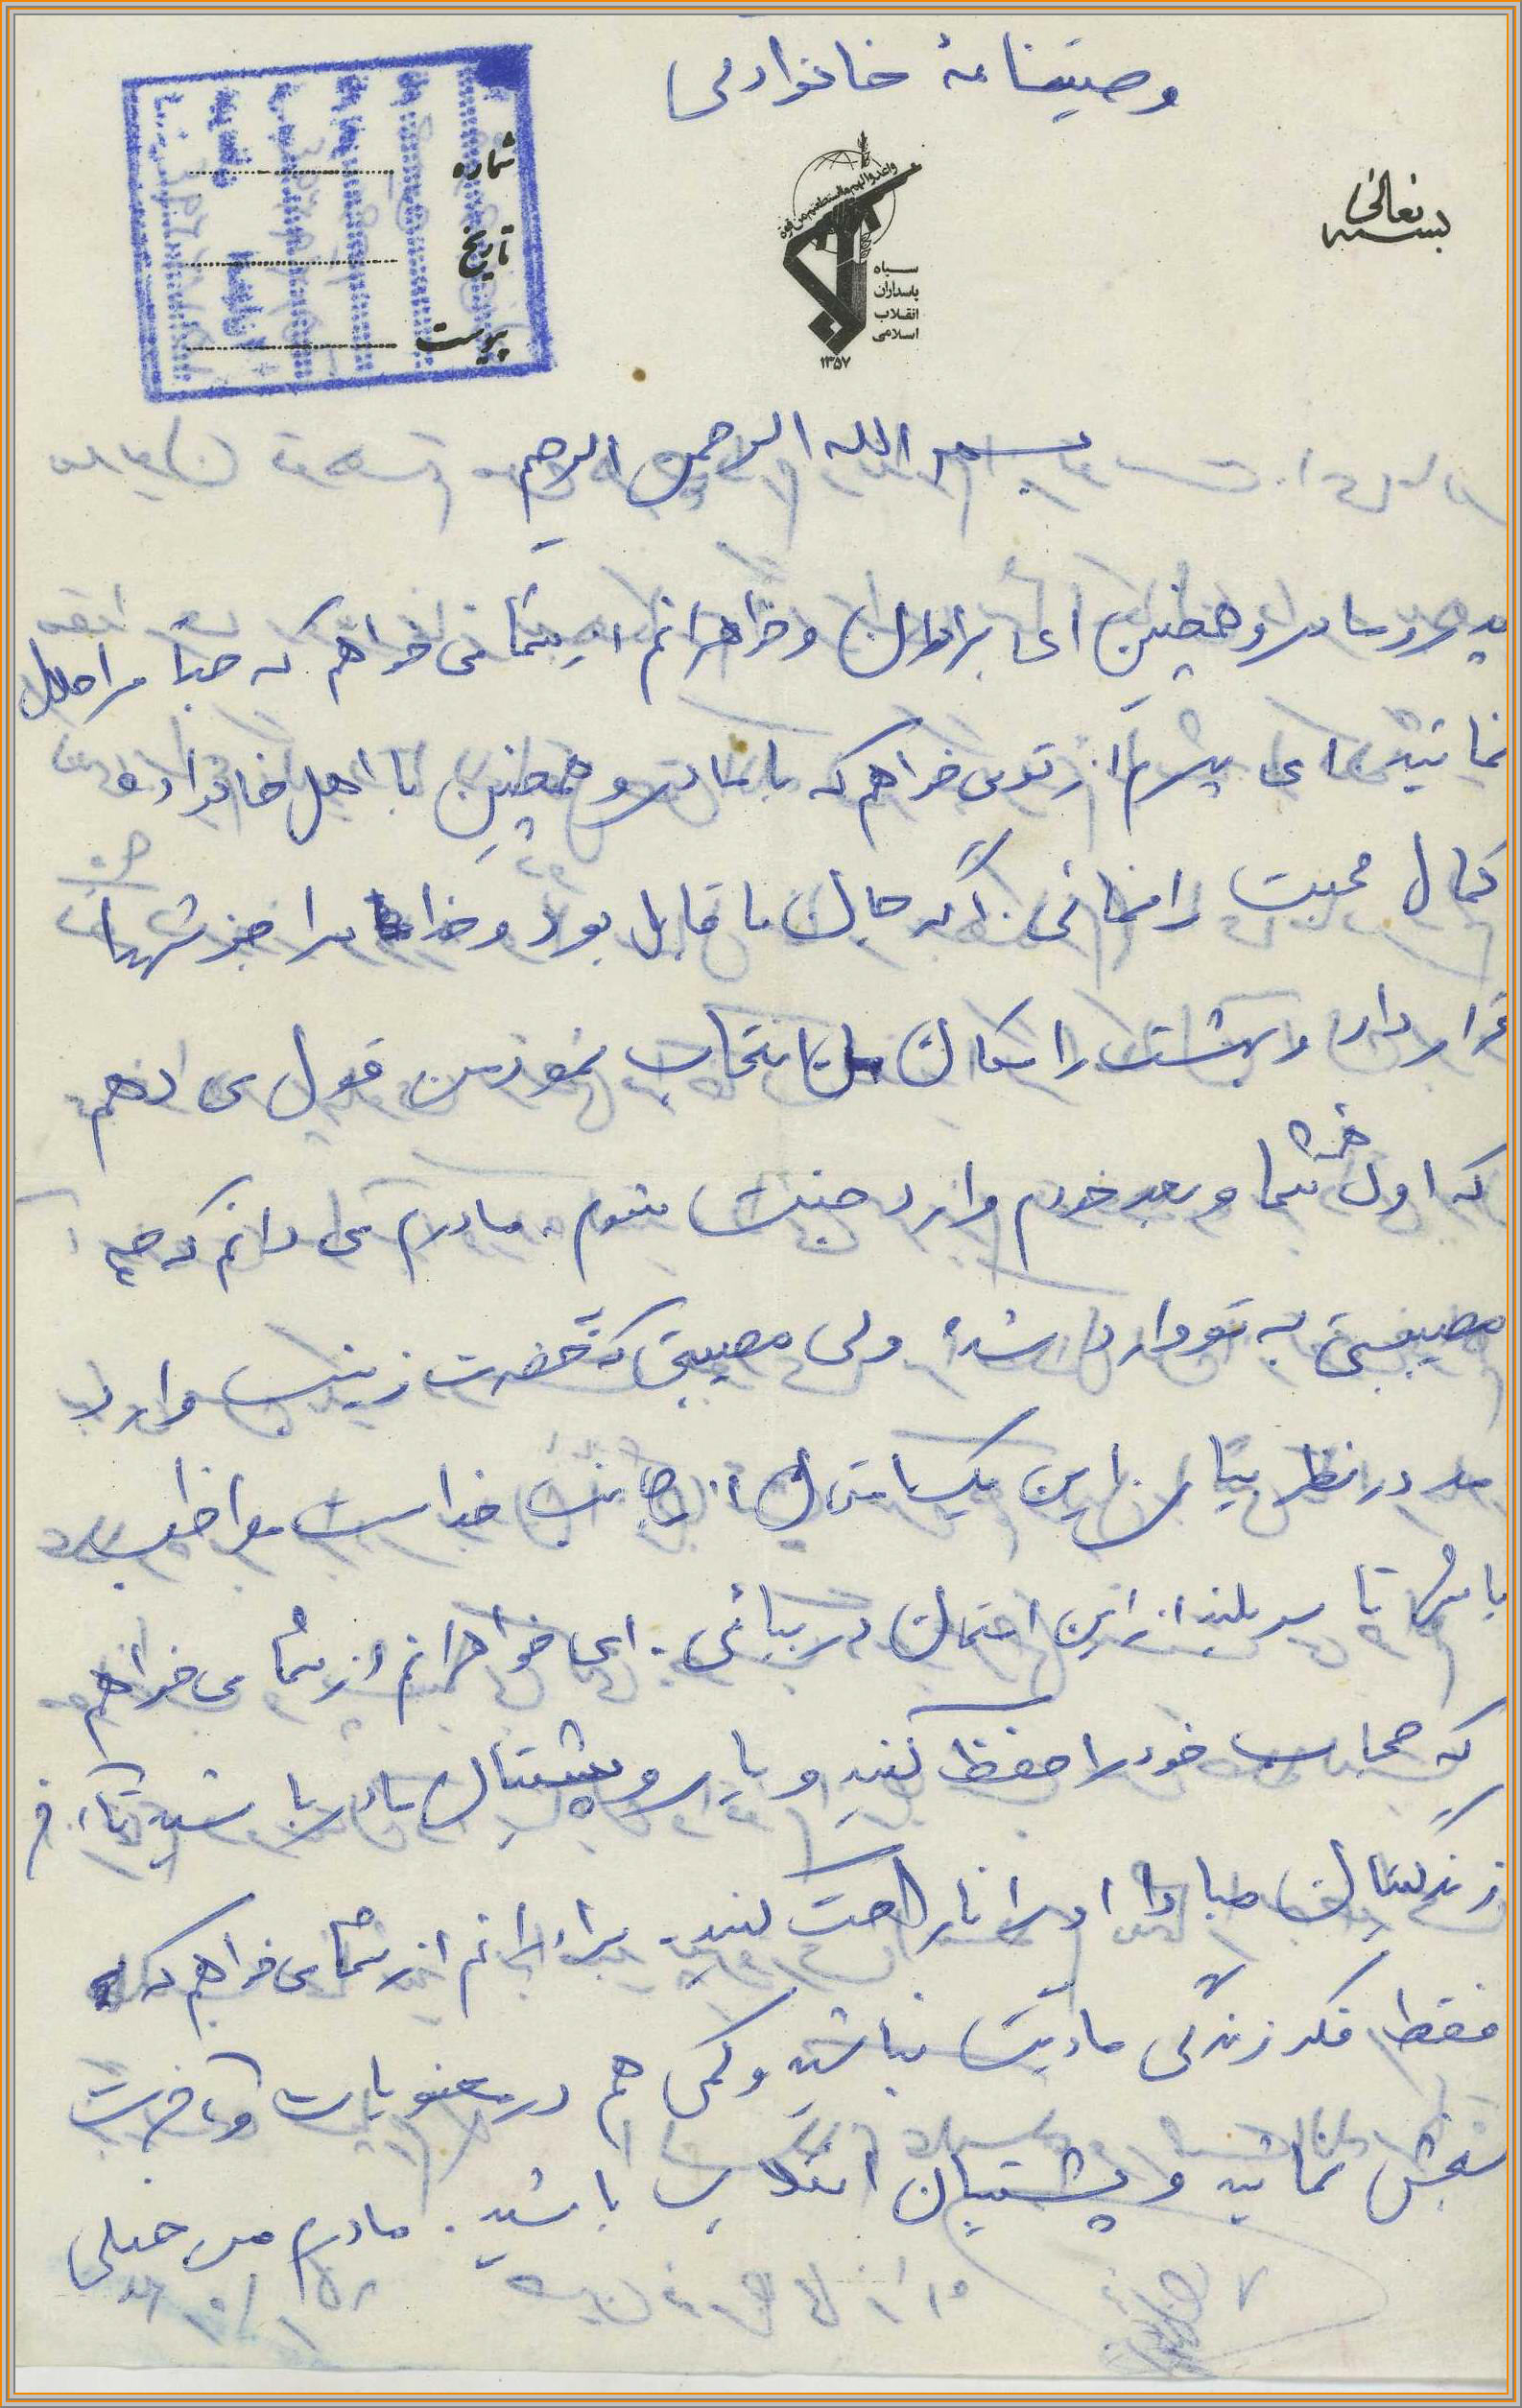 وصیتنامهٔ خانوادگی
بسمه تعالی
شماره
تاریخ
پیوست
واعدوا لهم ما استطعتم من قوة
سپاه
پاسداران
انقلاب
اسلامی
۱۳۵۷
بسم الله الرحمن الرحیم
پدر و مادر و همچنین ای برادران و خواهرانم از شما می خواهم که حتماً مرا حلال
نمائید ای پدرم از تو می خواهم که با مادر و همچنین با اهل خانواده
کمال محبت را نمائی اگر جان ما قابل بود و خدا مرا جزو شهدا
قرار داد و بهشت را مکان ما انتخاب نمود من قول می دهم
که اول همه شما و بعد خودم وارد جنت شوم. مادرم می دانم که چه
مصیبتی به تو وارد شده ولی مصیبتی که به حضرت زینب وارد
شد در نظر بیار این یک امتحان از جانب خداست مواظب
باش تا سربلند از این امتحان در بیائی. ای خواهرانم از شما می خواهم
که حجاب خود را حفظ کنید و یار و پشتیبان مادر باشید تا آخر
زندگیتان مبادا او را ناراحت کنید. برادرانم از شما می خواهم که
فقط فکر زندگی مادیت نباشید و کمی هم در معنویات و آخرت
نمائید و پشتیبان انقلاب باشید. مادرم من خیلی